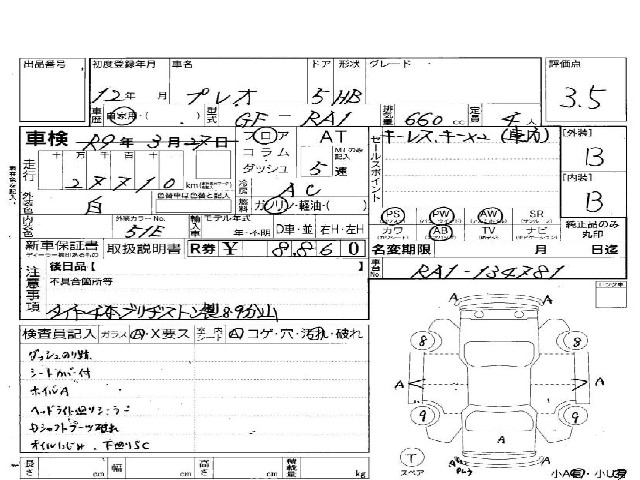 出品番号 初度登録年月 車名 ドア 形状 グレード 評価点
12年 月 プレオ 5 HB 3.5
車歴 自家用・( ) 型式 GF-RA1 排気量 660cc 定員 4人
車検 R9年3月27日 フロア AT キーレス、キー×2(車内) [外装]
コラム M・Tのみ記入 セールスポイント B
走行 十万 千百十 ダッシュ 5速
27710 km 冷房 AC [内装]
外装色 白 色替車は色替と記入 燃料 ガソリン・軽油・( ) B
内装色 外装カラーNo. 51E 輸入車 モデル年式 年・不明 D車・並 右H・左H
PS PW AW SR
カワ AB TV ナビ 純正品のみ丸印
新車保証書 取扱説明書 R券 ¥8,860 名変期限 月 日迄
ディーラー捺印あるもの
後日品【 】 車台No. RA1-134781
注意事項 不具合箇所等
タイヤ4本ブリヂストン製8.9分山
検査員記入 ガラス A・X要ス 室内シート A コゲ・穴・汚れ・破れ
シートカバー付
ホイルA
Dシャフトブーツ破れ
オイルにじみ、下廻りSC
長さ cm 幅 cm 高さ cm 積載量 kg
A
8 8
A A
9 9
A
T
スペア
小A・小U